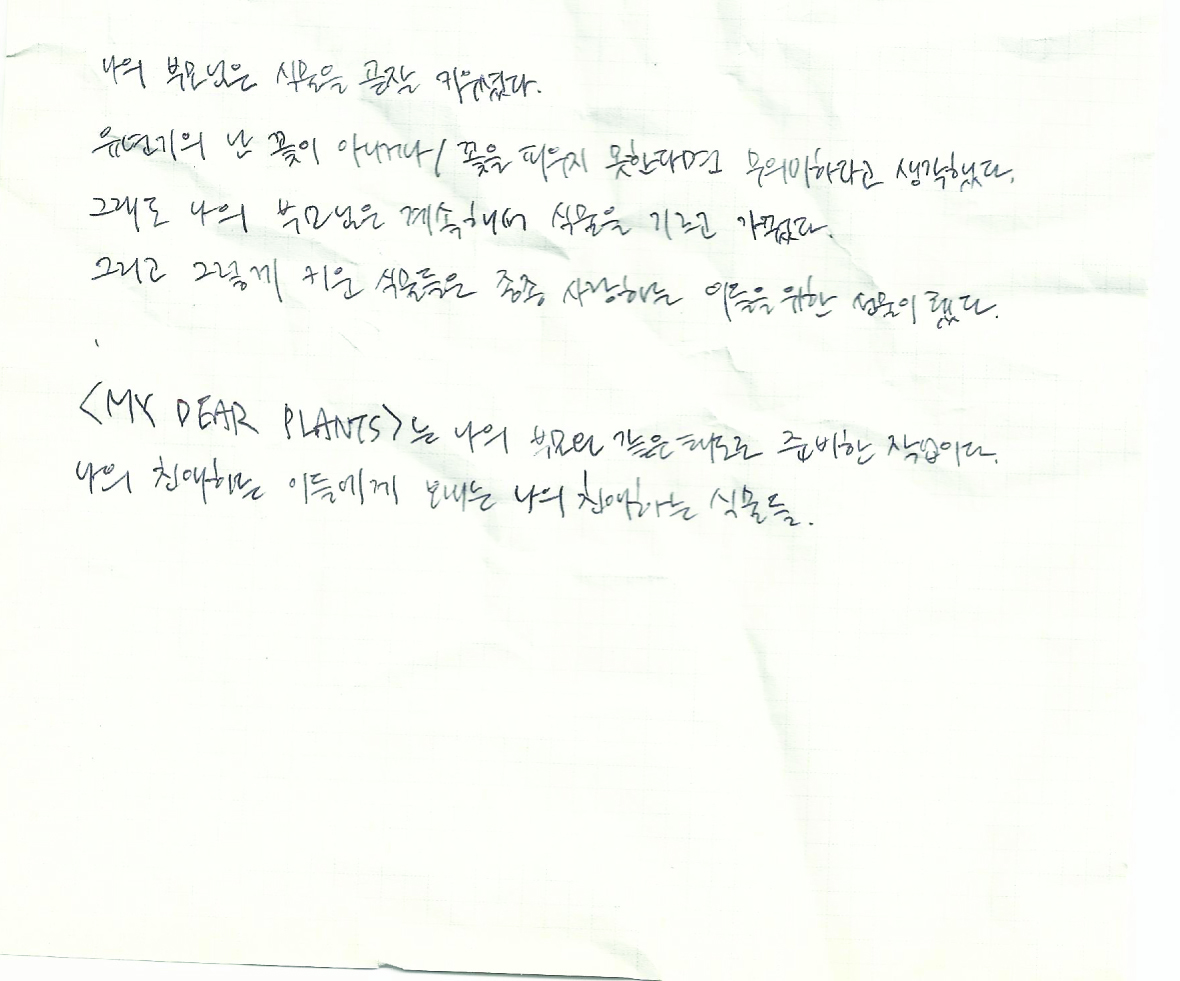 나의 부모님은 식물을 곧잘 키우셨다.
유년기의 난 꽃이 아니거나, 꽃을 피우지 못한다면 무의미하다고 생각했다.
그래도 나의 부모님은 계속해서 식물을 기르고 가꿨다.
그리고 그렇게 키운 식물들은 종종 사랑하는 이들을 위한 선물이 됐다.
<MY DEAR PLANTS>는 나의 부모와 같은 태도로 준비한 작업이다.
나의 친애하는 이들에게 보내는 나의 친애하는 식물들.